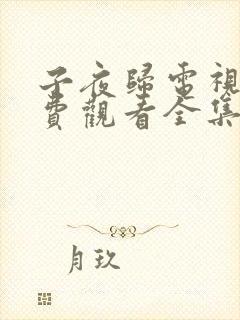 子夜歸電視
費觀看全集
月玖